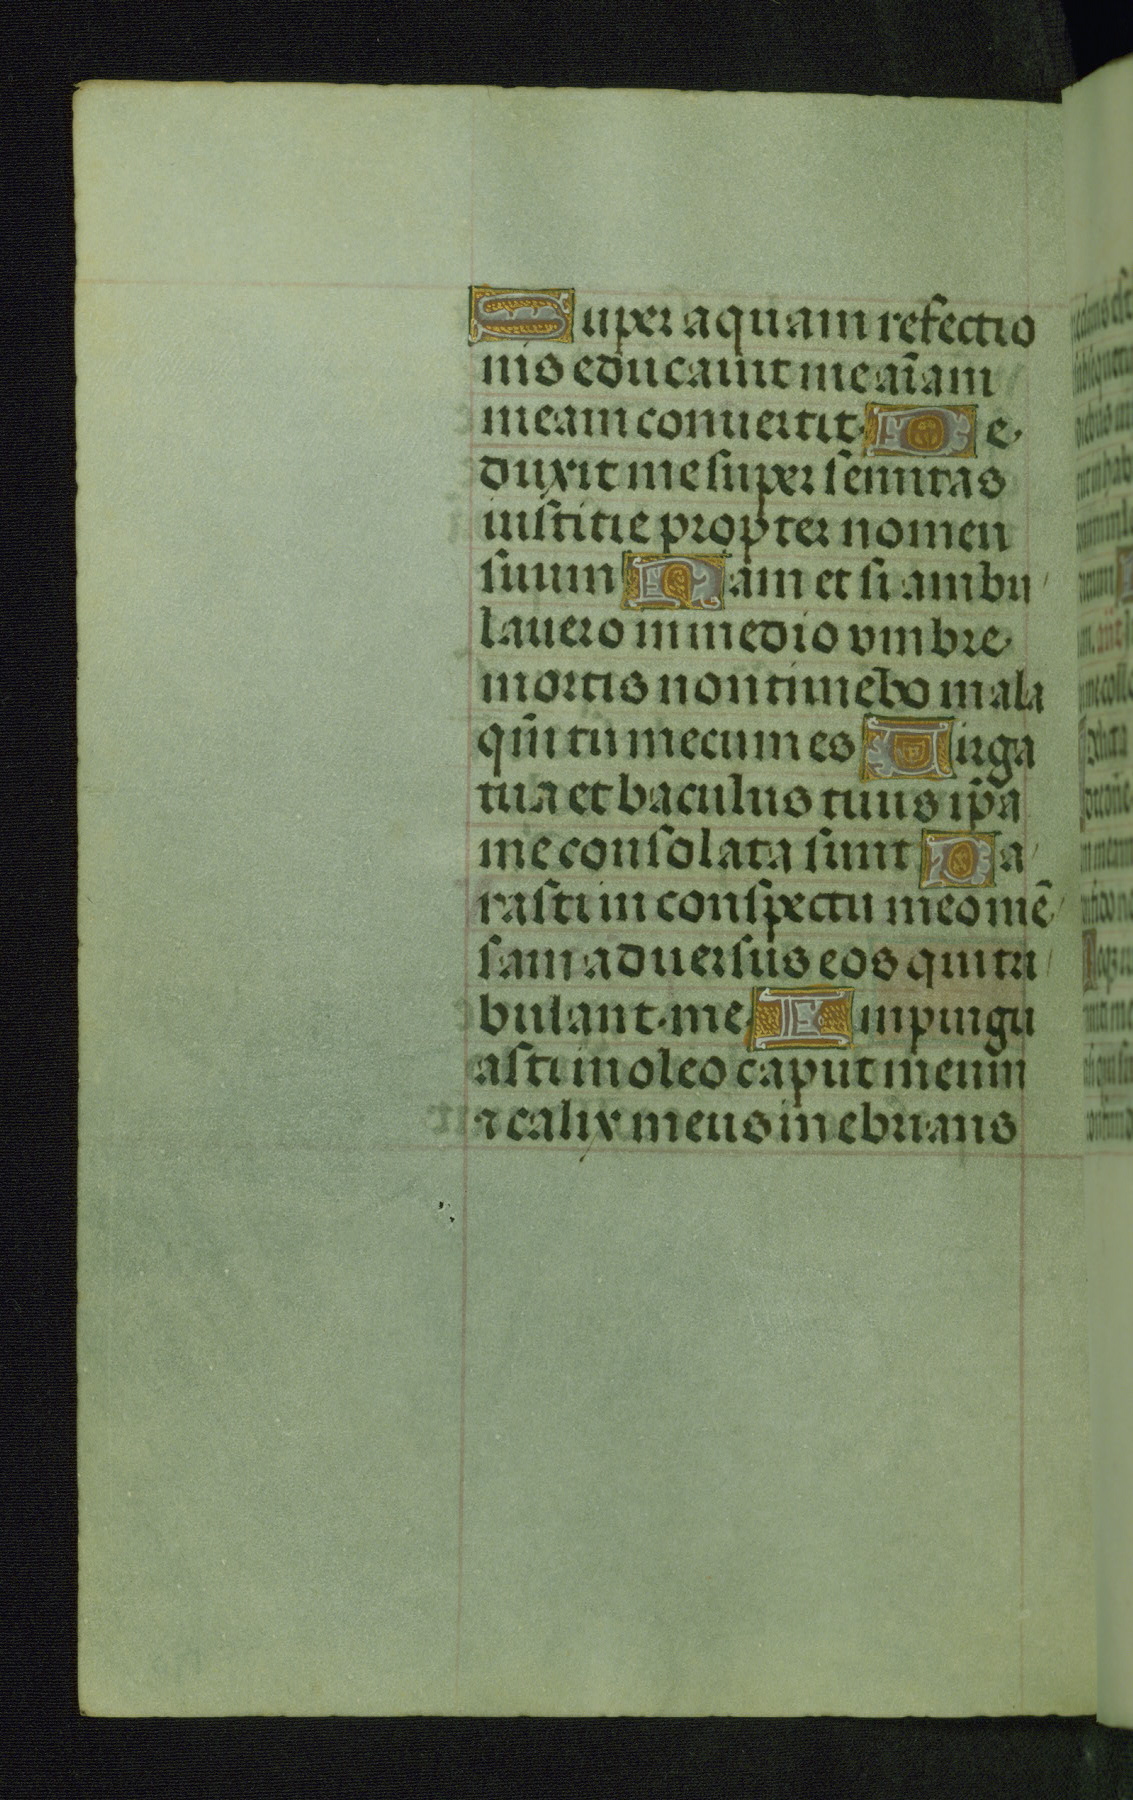 Super aquam refectio
nis educauit me aīam
meam conuertit. De
duxit me super semitas
iusticie propter nomen
suum Nam et si ambu
lauero in medio vmbre
mortis non timebo mala
qm̄ tu mecum es Uirga
tua et baculus tuus ip̄a
me consolata sunt Pa
rasti in conspectu meo mē
sam aduersus eos qui tri
bulant me Inpingu
asti in oleo caput meum
⁊ calix meus inebrians